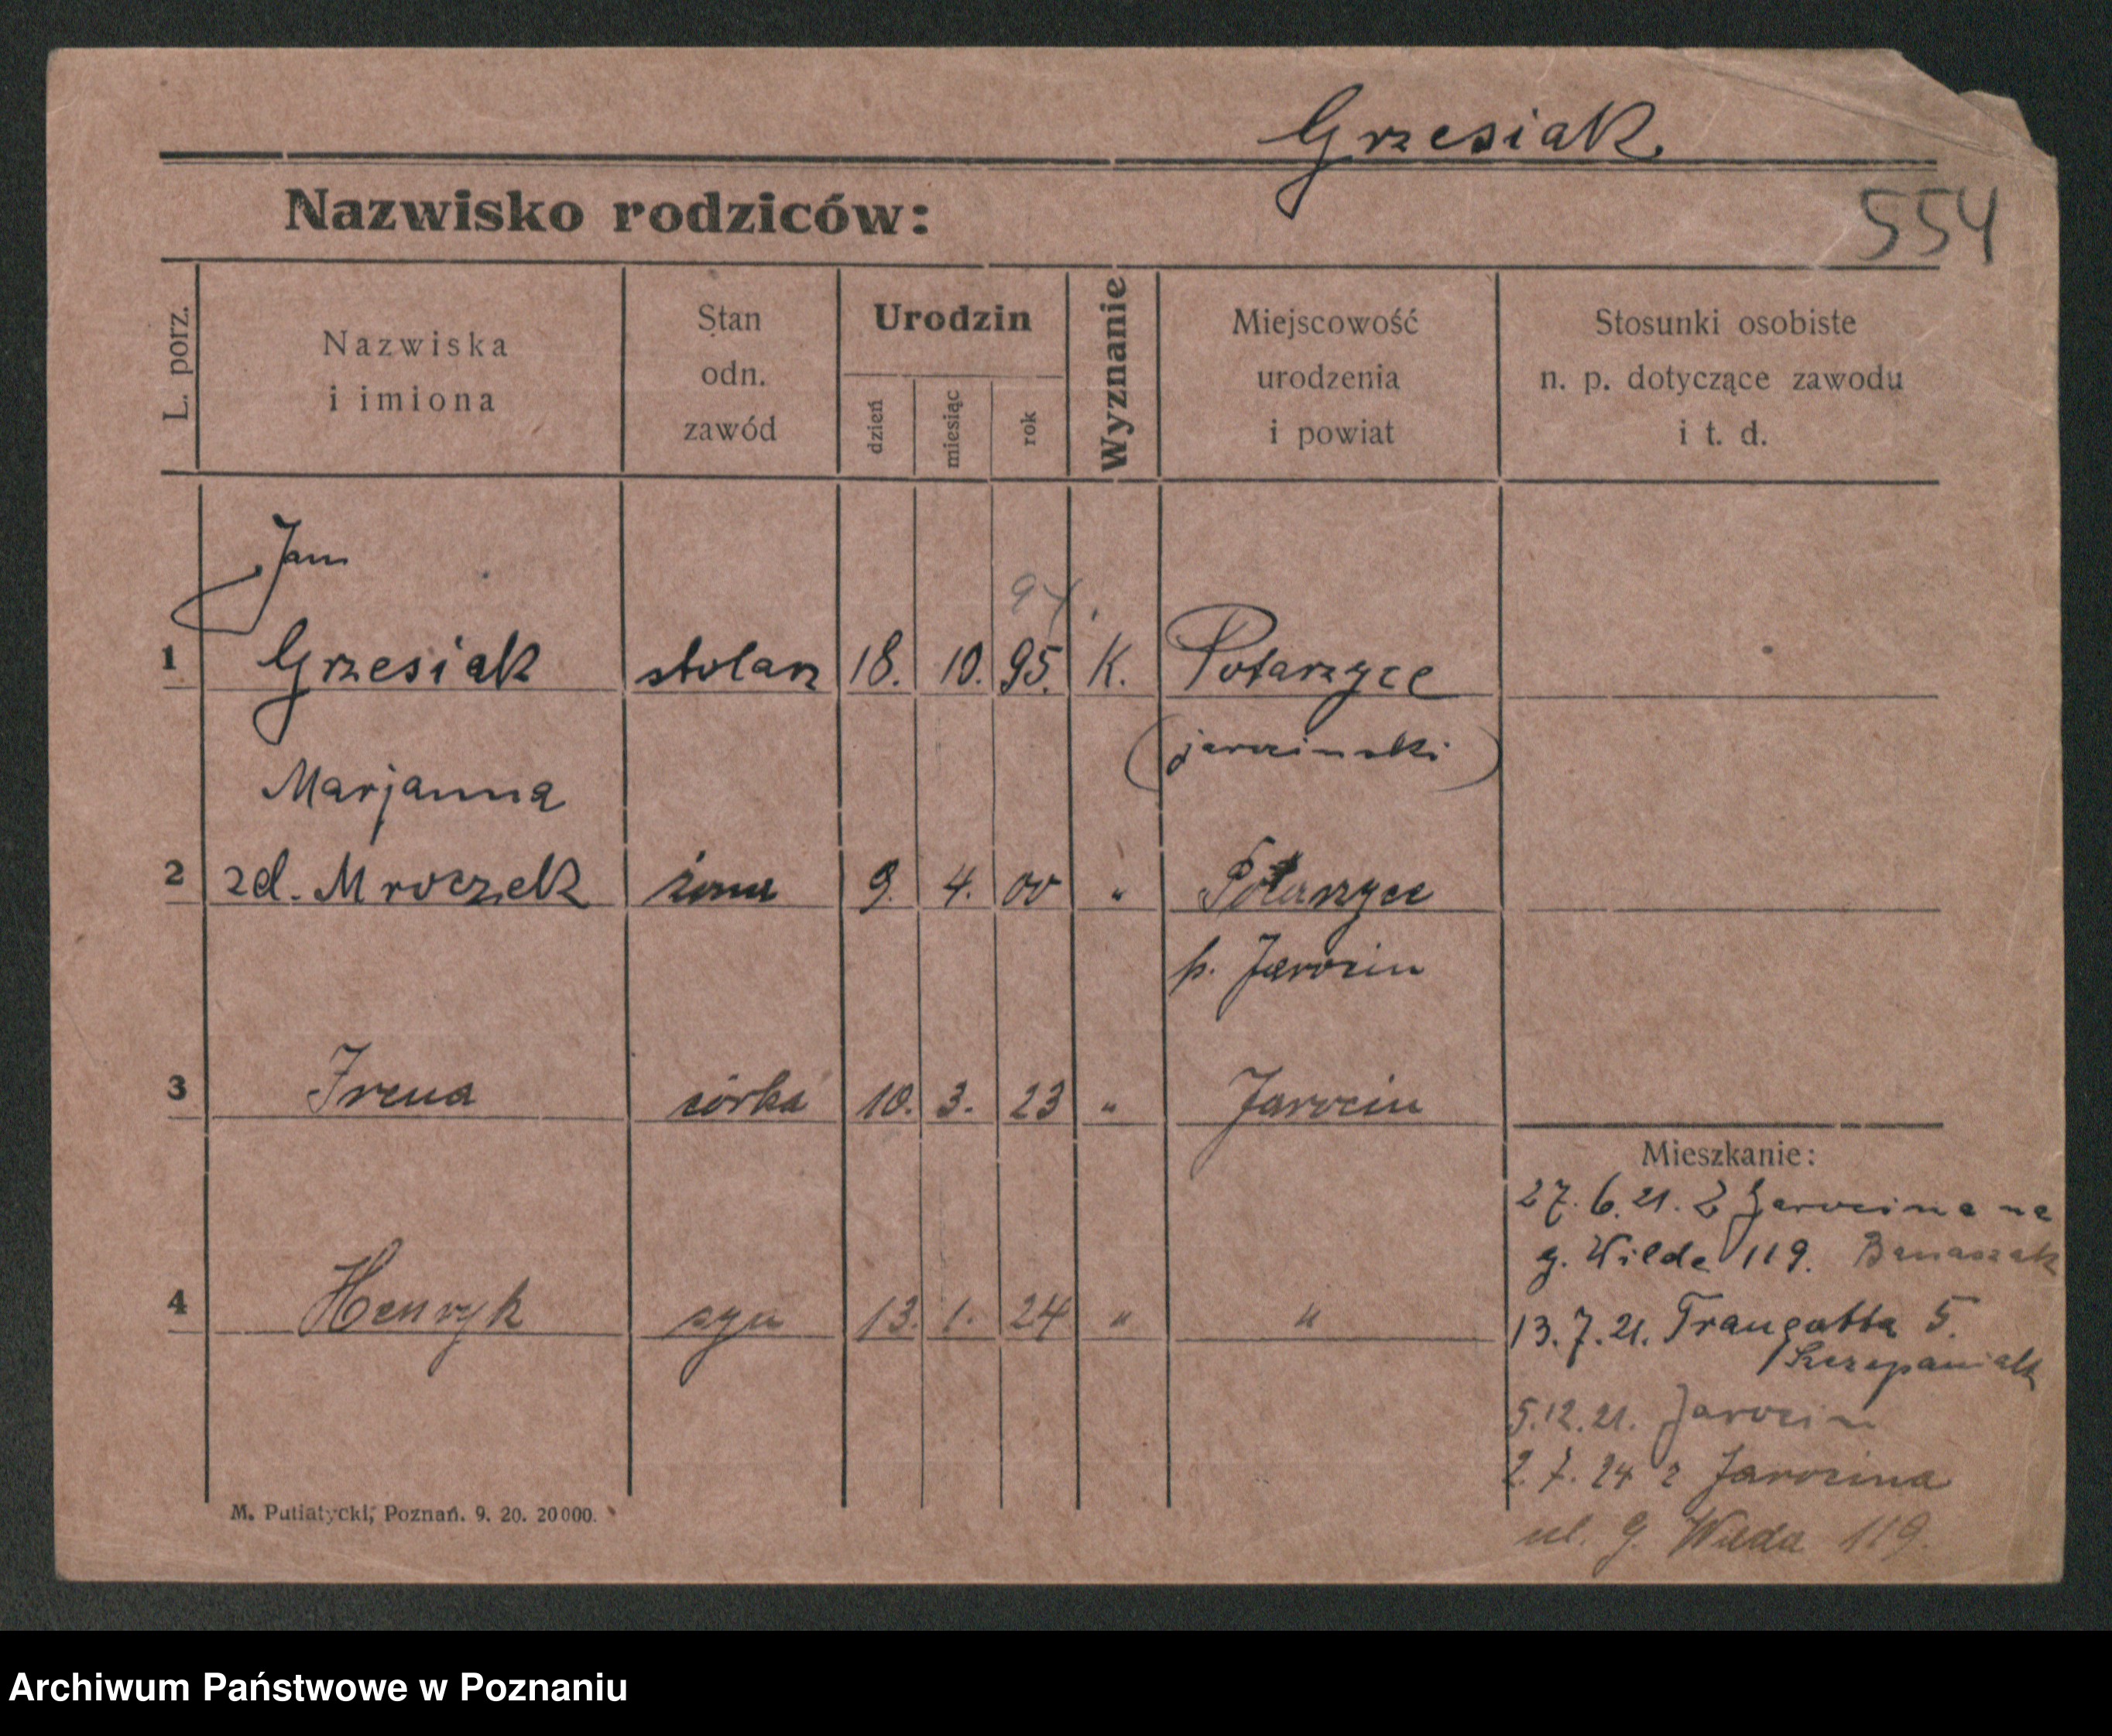 Grzesiak
554
Nazwisko rodziców:
L. porz.
Nazwiska
i imiona
Stan
odn.
zawód
Urodzin
dzień
miesiąc
rok
Wyznanie
Miejscowość
urodzenia
i powiat
Stosunki osobiste
n. p. dotyczące zawodu
i t. d.
Jan
94.
1 Grzesiak stolarz 18. 10. 95. K. Potarzyce
(jarocinski)
Marjanna
2 zd. Mroczek żona 9. 4. 00 " Potarzyce
p. Jarocin
3 Irena córka 10. 3. 23 " Jarocin
4 Henryk syn 13. 1. 24 " "
Mieszkanie:
27. 6. 21. Z Jarocina na
g. Wilda 119. Banaszak
13. 7. 21. Traugutta 5.
Szczepaniak
5.12.21. Jarocin
2. 7. 24 z Jarocina
ul. G. Wilda 119.
M. Putiatycki, Poznań. 9. 20. 20000.
Archiwum Państwowe w Poznaniu